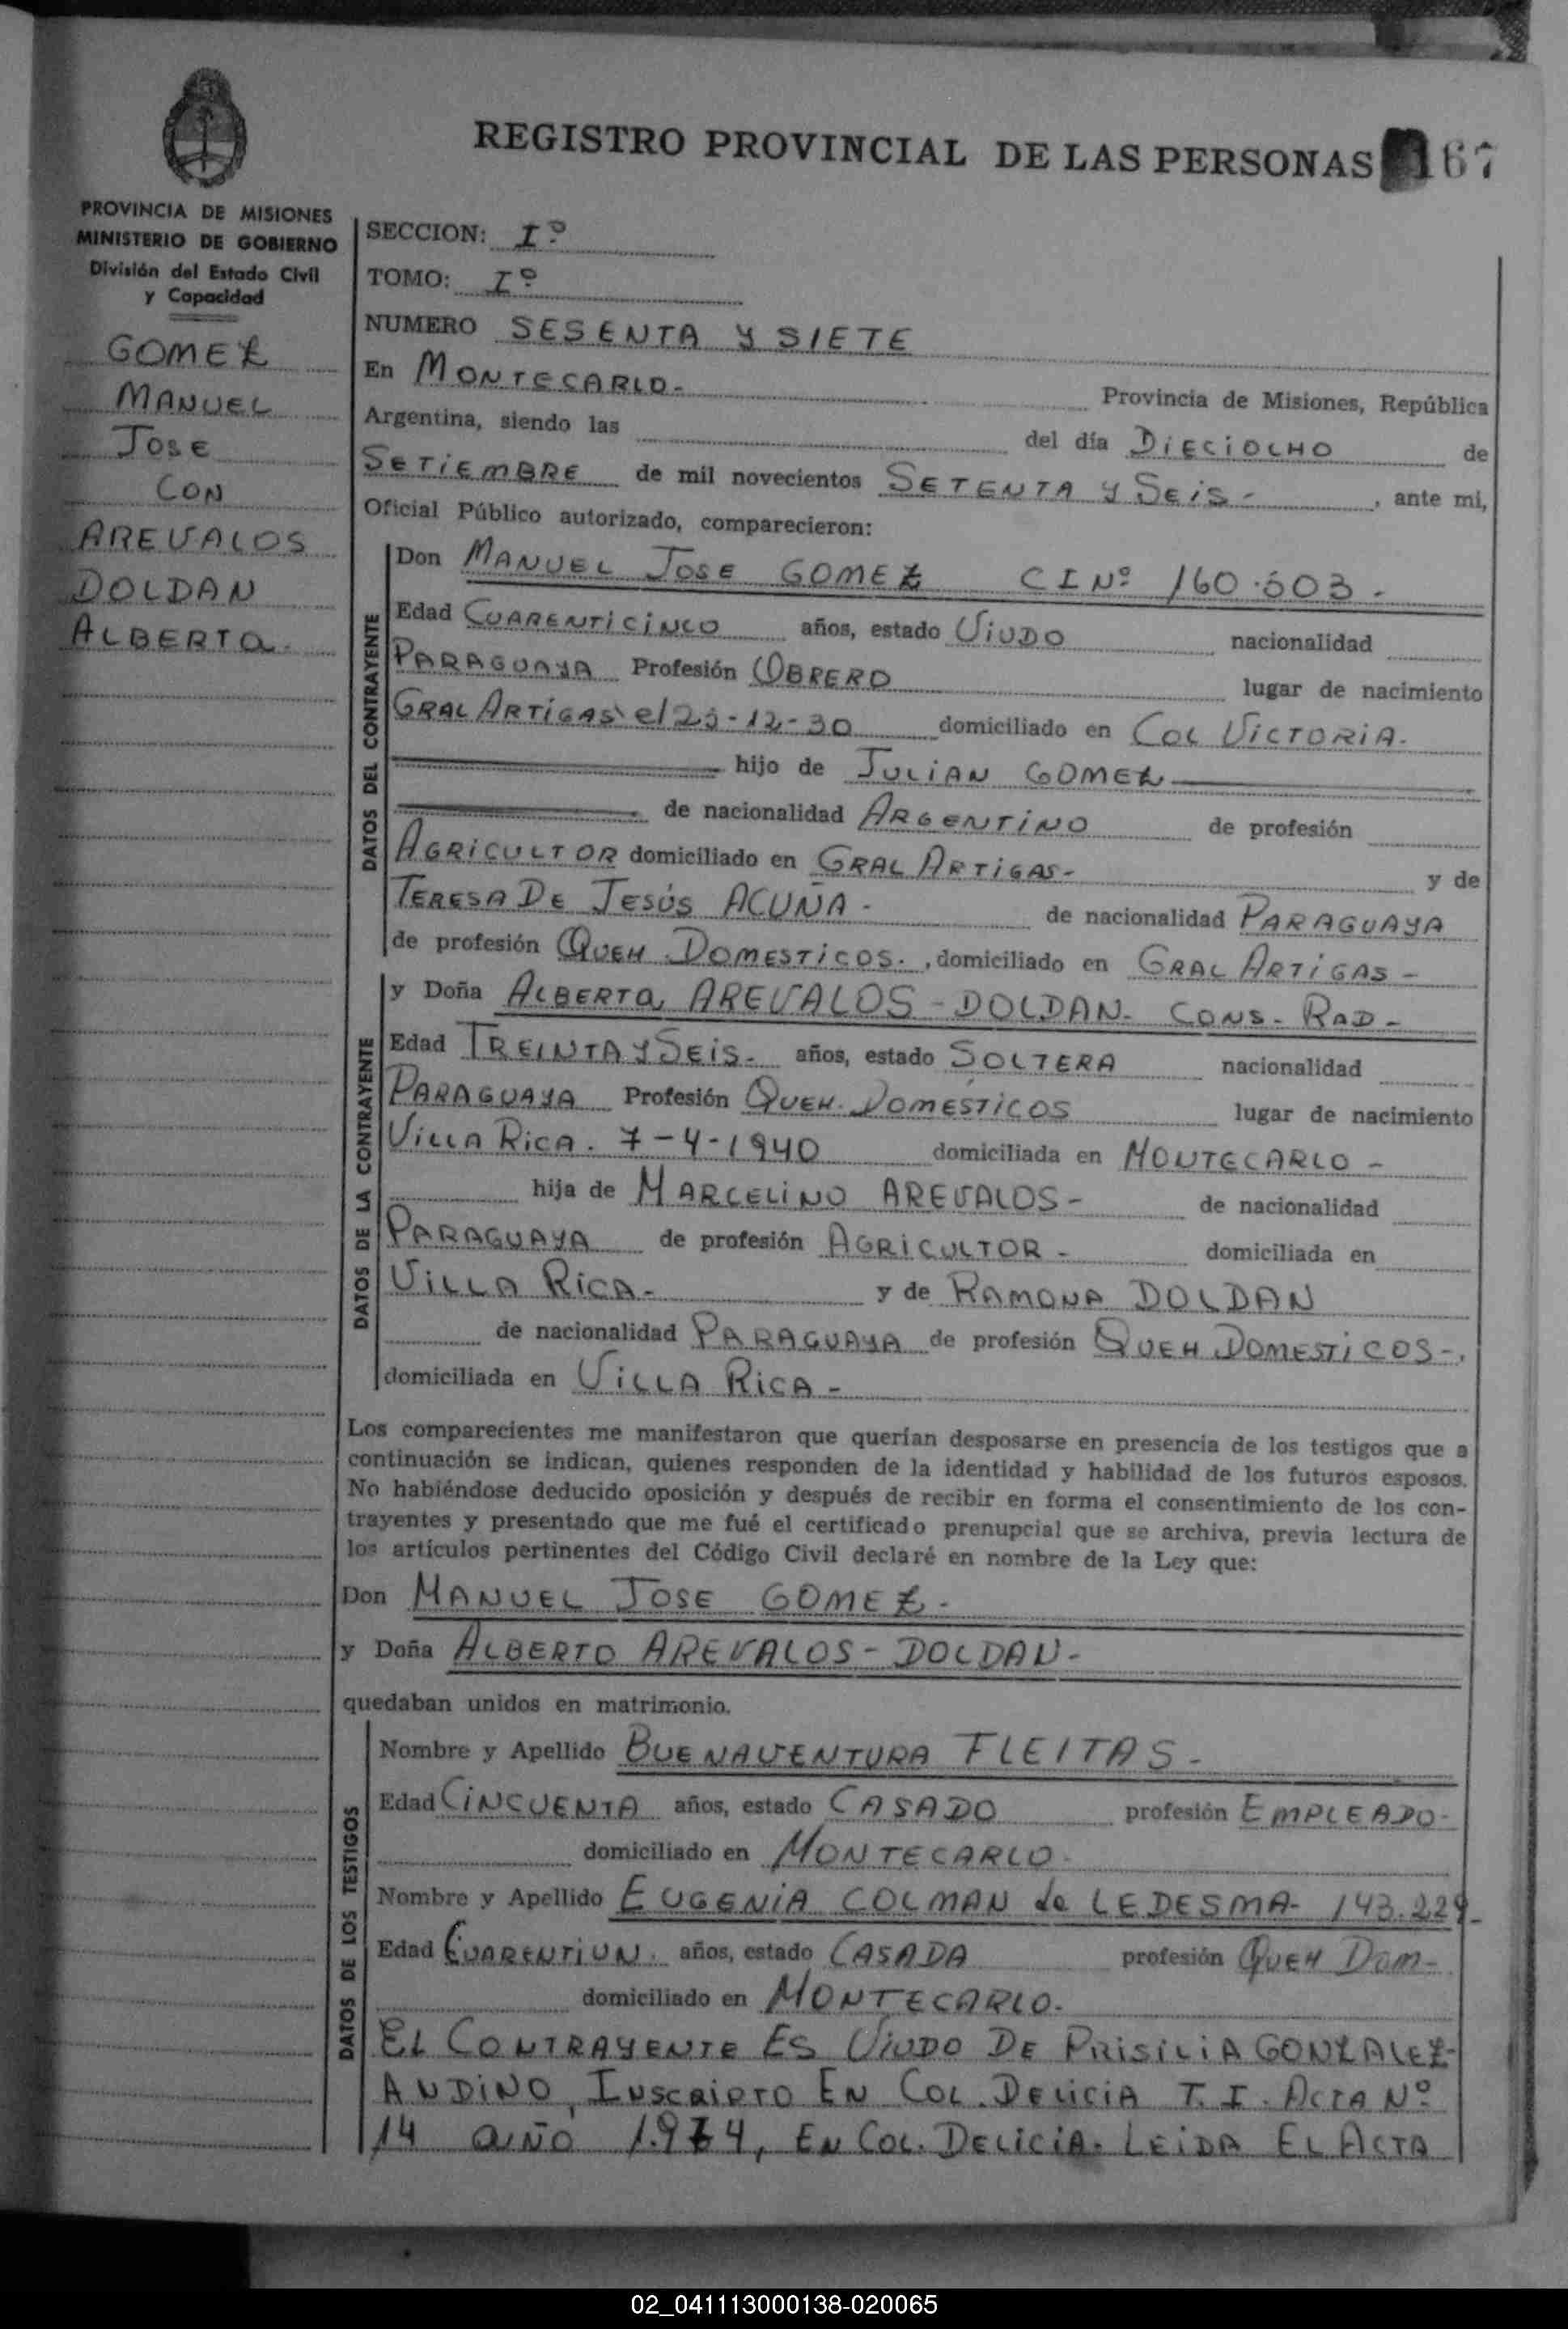 REGISTRO PROVINCIAL DE LAS PERSONAS 167
PROVINCIA DE MISIONES
MINISTERIO DE GOBIERNO
División del Estado Civil
y Capacidad
GOMEZ
MANUEL
JOSE
CON
AREVALOS
DOLDAN
ALBERTA.
SECCION: Iº
TOMO: Iº
NUMERO SESENTA Y SIETE
En MONTECARLO- Provincia de Misiones, República
Argentina, siendo las del día DIECIOCHO de
SETIEMBRE de mil novecientos SETENTA Y SEIS- , ante mi,
Oficial Público autorizado, comparecieron:
DATOS DEL CONTRAYENTE
Don MANUEL JOSE GOMEZ CI Nº 160.503.-
Edad CUARENTICINCO años, estado VIUDO nacionalidad
PARAGUAYA Profesión OBRERO lugar de nacimiento
GRAL ARTIGAS el 25-12-30 domiciliado en COL VICTORIA.
hijo de JULIAN GOMEZ
de nacionalidad ARGENTINO de profesión
AGRICULTOR domiciliado en GRAL ARTIGAS- y de
TERESA DE JESÚS ACUÑA- de nacionalidad PARAGUAYA
de profesión QUEH DOMESTICOS. , domiciliado en GRAL ARTIGAS-
DATOS DE LA CONTRAYENTE
y Doña ALBERTA AREVALOS-DOLDAN- CONS- RAD-
Edad TREINTA Y SEIS- años, estado SOLTERA nacionalidad
PARAGUAYA Profesión QUEH. DOMESTICOS lugar de nacimiento
VILLA RICA. 7-4-1940 domiciliada en MONTECARLO-
hija de MARCELINO AREVALOS- de nacionalidad
PARAGUAYA de profesión AGRICULTOR- domiciliada en
VILLA RICA- y de RAMONA DOLDAN
de nacionalidad PARAGUAYA de profesión QUEH DOMESTICOS-,
domiciliada en VILLA RICA-
Los comparecientes me manifestaron que querían desposarse en presencia de los testigos que a
continuación se indican, quienes responden de la identidad y habilidad de los futuros esposos.
No habiéndose deducido oposición y después de recibir en forma el consentimiento de los con-
trayentes y presentado que me fué el certificado prenupcial que se archiva, previa lectura de
los artículos pertinentes del Código Civil declaré en nombre de la Ley que:
Don MANUEL JOSE GOMEZ-
y Doña ALBERTO AREVALOS-DOLDAN-
quedaban unidos en matrimonio.
DATOS DE LOS TESTIGOS
Nombre y Apellido BUENAVENTURA FLEITAS-
Edad CINCUENTA años, estado CASADO profesión EMPLEADO-
domiciliado en MONTECARLO-
Nombre y Apellido EUGENIA COLMAN de LEDESMA- 143.229-
Edad CUARENTIUN. años, estado CASADA profesión QUEH DOM-
domiciliado en MONTECARLO.
EL CONTRAYENTE ES VIUDO DE PRISILIA GONZALEZ-
ANDINO, INSCRIPTO EN COL. DELICIA T. I. ACTA Nº
14 AÑO 1.974, EN COL. DELICIA. LEIDA EL ACTA
02_041113000138-020065